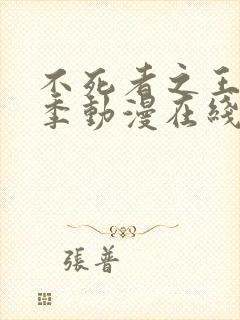 不死者之王
季動漫在綫
張普